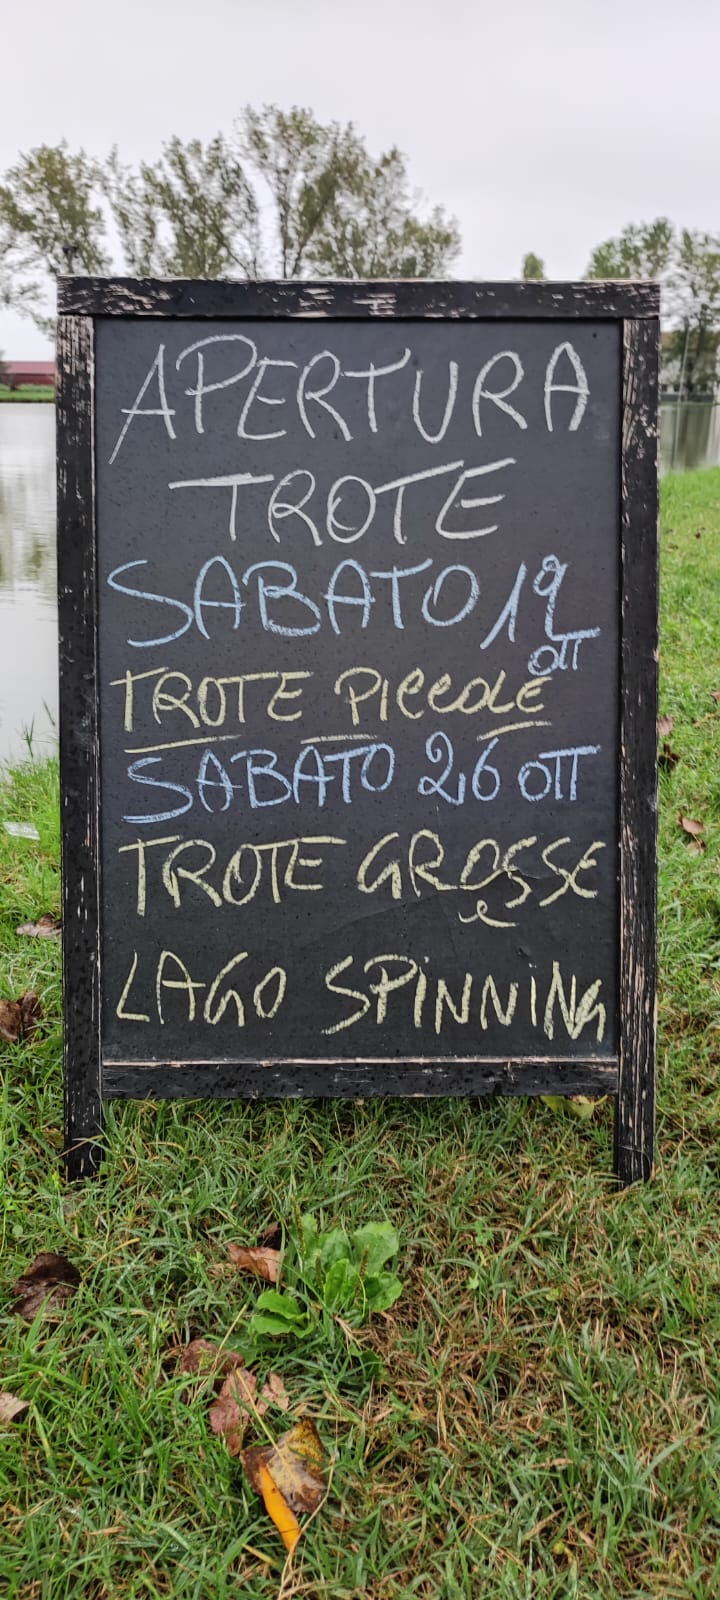 APERTURA
TROTE
SABATO 19
OTT
TROTE PICCOLE
SABATO 26 OTT
TROTE GROSSE
e
LAGO SPINNING